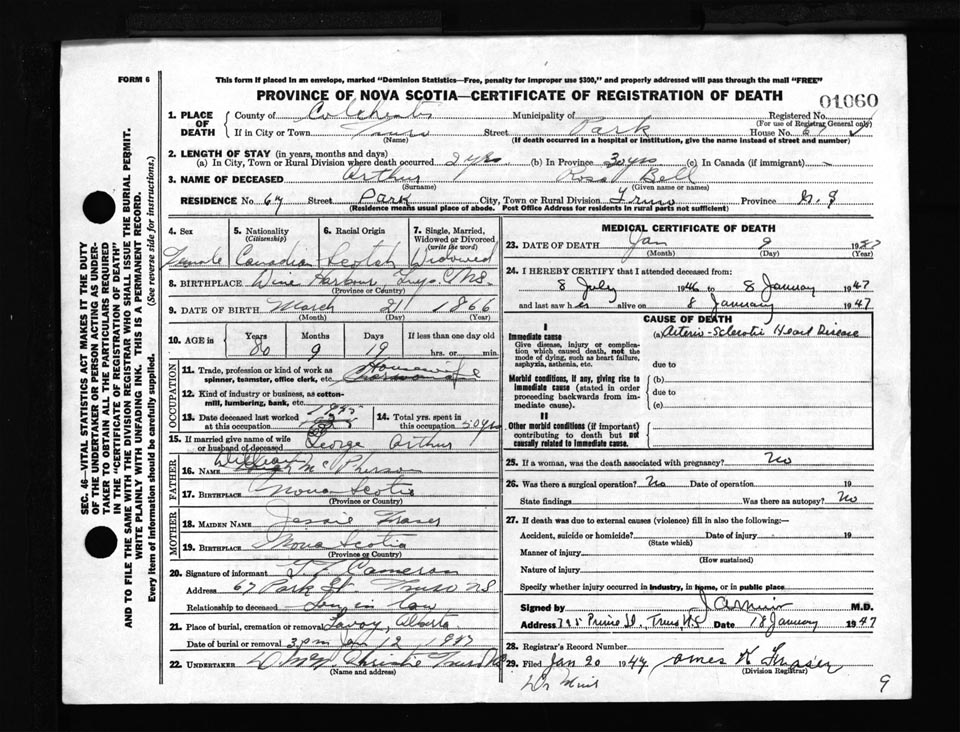 FORM 6
This form if placed in an envelope, marked "Dominion Statistics—Free, penalty for improper use $300," and properly addressed will pass through the mail "FREE"
PROVINCE OF NOVA SCOTIA—CERTIFICATE OF REGISTRATION OF DEATH
01060
1. PLACE OF DEATH
County of Colchester Municipality of Registered No.
(For use of Registrar General only)
If in City or Town Truro Street Park House No. 67
(Name) (If death occurred in a hospital or institution, give the name instead of street and number)
2. LENGTH OF STAY (in years, months and days)
(a) In City, Town or Rural Division where death occurred 2 yrs (b) In Province 30 yrs (c) In Canada (if immigrant) -
3. NAME OF DECEASED Arthur Rosa Bell
(Surname) (Given name or names)
RESIDENCE No. 67 Street Park City, Town or Rural Division Truro Province N.S
(Residence means usual place of abode. Post Office Address for residents in rural parts not sufficient)
4. Sex
Female
5. Nationality
(Citizenship)
Canadian
6. Racial Origin
Scotch
7. Single, Married, Widowed or Divorced
(write the word)
Widowed
8. BIRTHPLACE Wine Harbour Guys. Co NS.
(Province or Country)
9. DATE OF BIRTH March 21 1866
(Month) (Day) (Year)
10. AGE in Years Months Days If less than one day old
80 9 19 hrs. or min.
OCCUPATION
11. Trade, profession or kind of work as spinner, teamster, office clerk, etc. Housewife
12. Kind of industry or business, as cotton-mill, lumbering, bank, etc.
13. Date deceased last worked at this occupation
14. Total yrs. spent in this occupation 50 yrs
15. If married give name of wife or husband of deceased George Arthur
FATHER
16. NAME William McPherson
17. BIRTHPLACE Nova Scotia
(Province or Country)
MOTHER
18. MAIDEN NAME Jessie Fraser
19. BIRTHPLACE Nova Scotia
(Province or Country)
20. Signature of informant Cameron
Address 67 Park St. Truro NS
Relationship to deceased Son in law
21. Place of burial, cremation or removal Lavoy, Alberta
Date of burial or removal 3 pm Jan 12 1947
22. UNDERTAKER Christie Truro NS
(Name and address)
MEDICAL CERTIFICATE OF DEATH
23. DATE OF DEATH Jan 9 1947
(Month) (Day) (Year)
24. I HEREBY CERTIFY that I attended deceased from:
8 July 1946 to 8 January 1947
and last saw her alive on 8 January 1947
CAUSE OF DEATH
I
Immediate cause
Give disease, injury or complication which caused death, not the mode of dying, such as heart failure, asphyxia, asthenia, etc.
(a) Arterio-Sclerotic Heart Disease
due to
Morbid conditions, if any, giving rise to immediate cause (stated in order proceeding backwards from immediate cause).
(b)
due to
(c)
II
Other morbid conditions (if important) contributing to death but not causally related to immediate cause.
25. If a woman, was the death associated with pregnancy? No
26. Was there a surgical operation? No Date of operation 19
State findings Was there an autopsy? No
27. If death was due to external causes (violence) fill in also the following:—
Accident, suicide or homicide? Date of injury 19
(State which)
Manner of injury
(How sustained)
Nature of injury
Specify whether injury occurred in industry, in home, or in public place
Signed by J A Muir M.D.
Address 795 Prince St. Truro, N.S Date 18 January 1947
28. Registrar's Record Number
29. Filed Jan 20 1947 James K Fraser
(Division Registrar)
Dr Muir
9
SEC. 46—VITAL STATISTICS ACT MAKES IT THE DUTY OF THE UNDERTAKER OR PERSON ACTING AS UNDERTAKER TO OBTAIN ALL THE PARTICULARS REQUIRED IN THE "CERTIFICATE OF REGISTRATION OF DEATH" AND TO FILE THE SAME WITH THE DIVISION REGISTRAR WHO SHALL ISSUE THE BURIAL PERMIT.
WRITE PLAINLY WITH UNFADING INK. THIS IS A PERMANENT RECORD.
Every item of information should be carefully supplied. (See reverse side for instructions.)